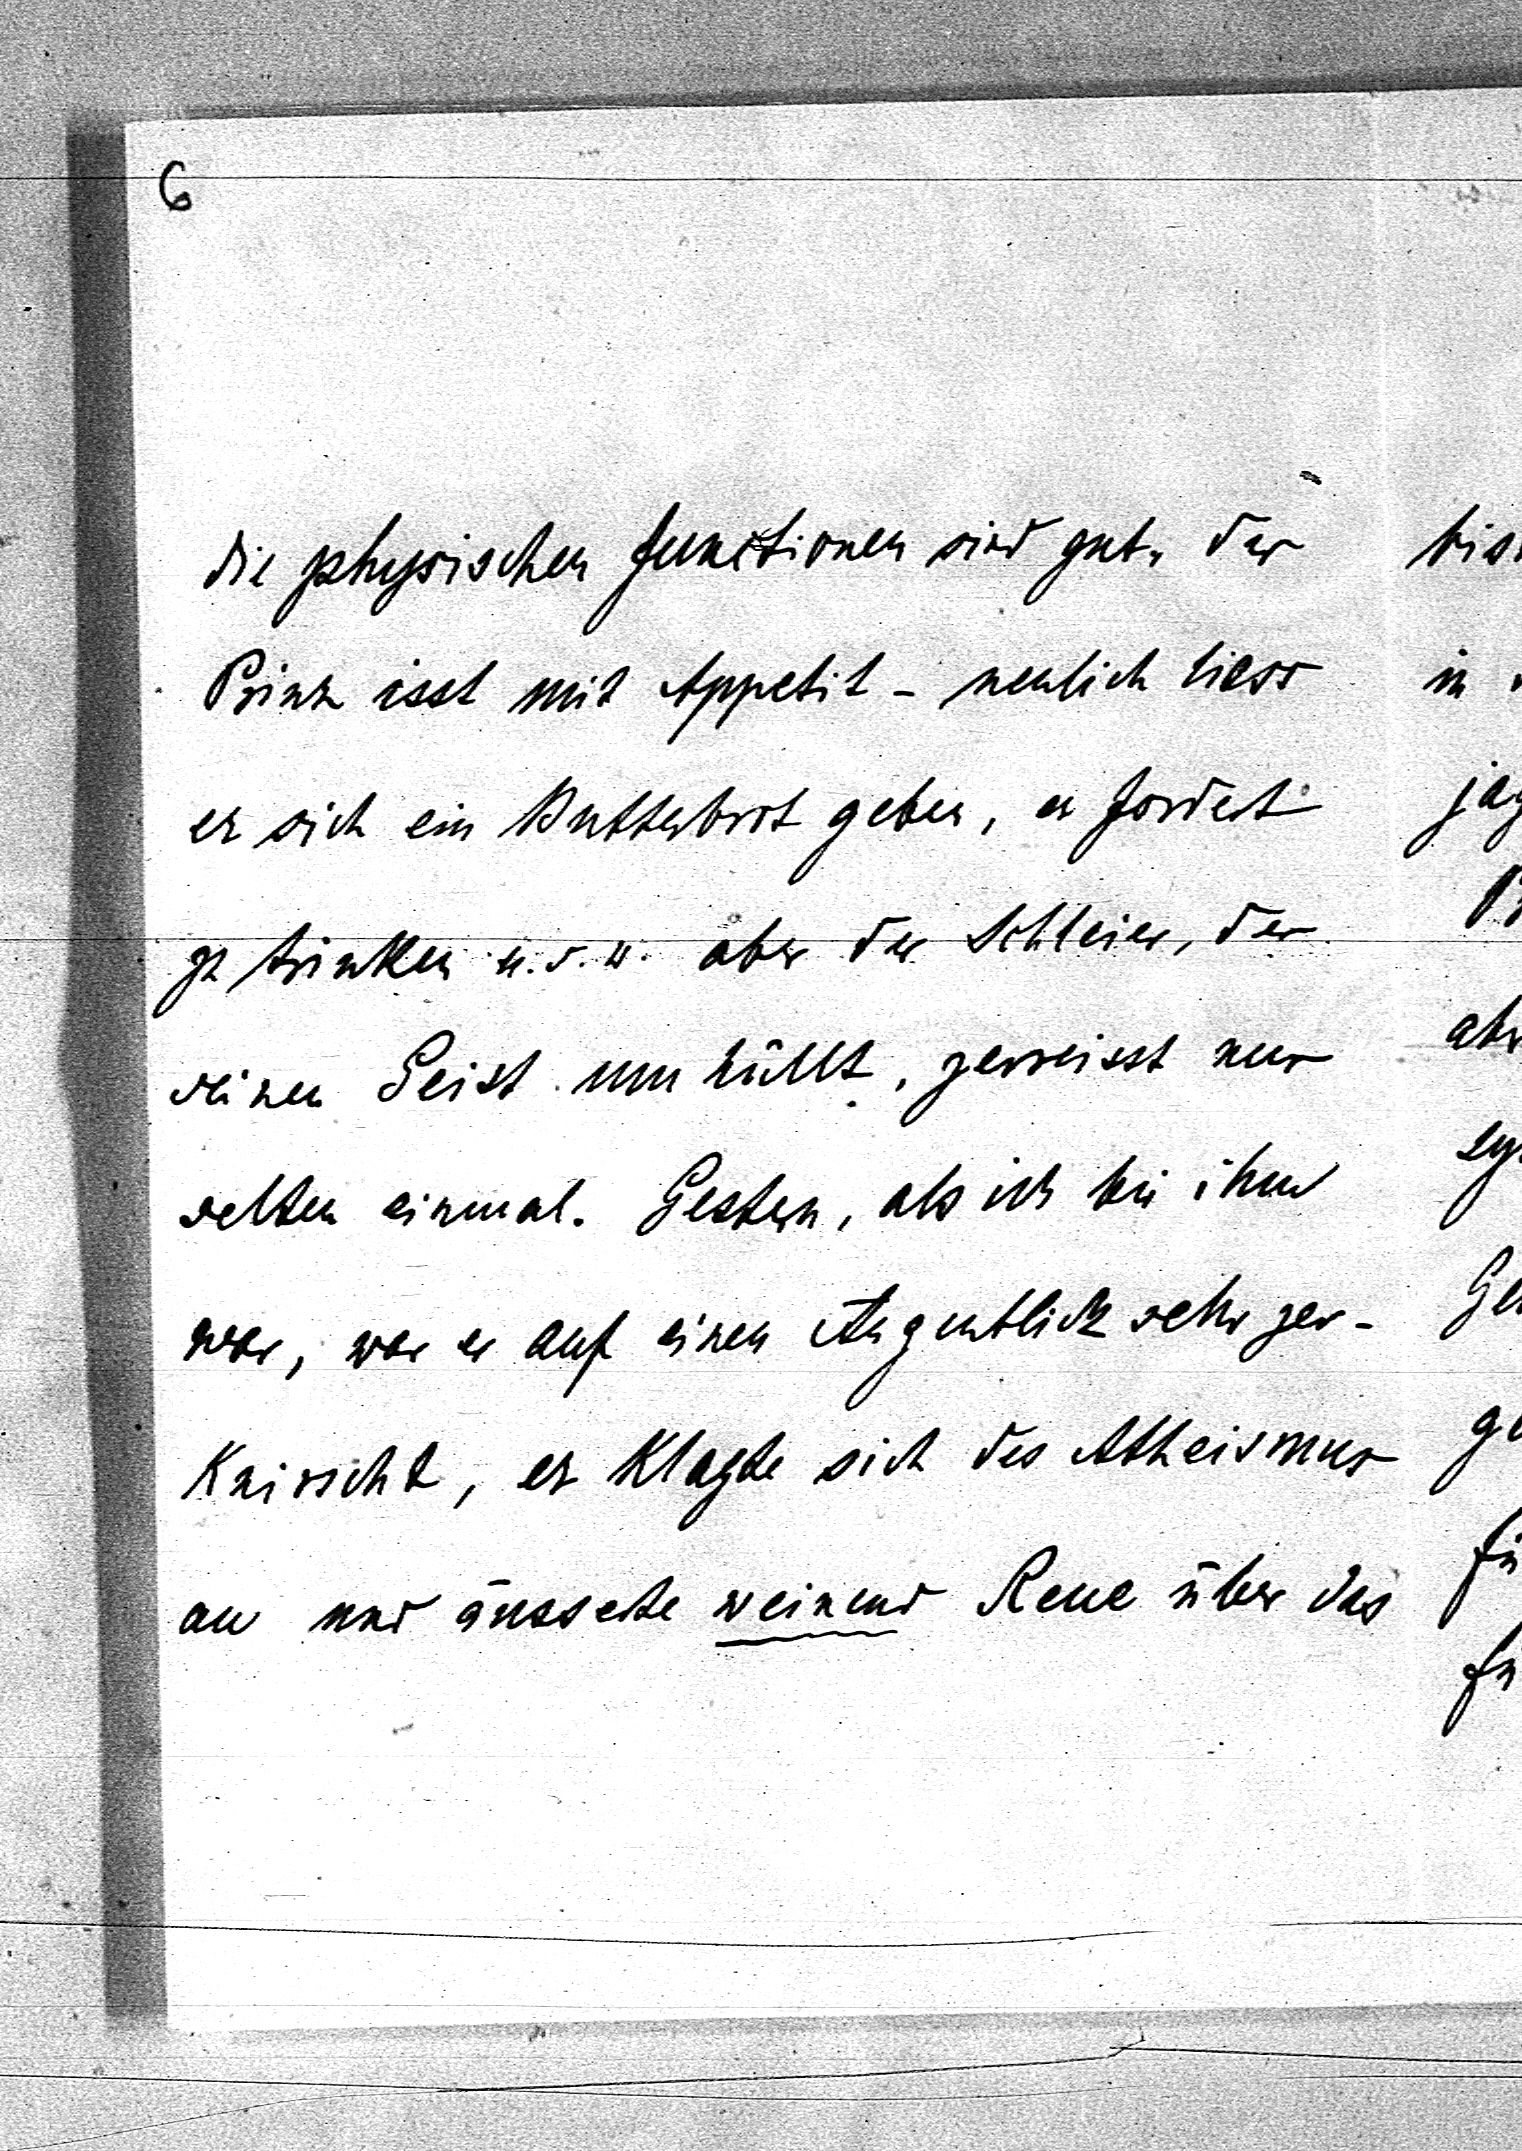 6
die physischen Functionen sind gut. der
Prinz isst mit Appetit - neulich liess
er sich ein Butterbrot geben, er fordert
zu trinken u.s.w. aber der Schleier, der
seinen Geist umhüllt, zerreisst nur
selten einmal. Gestern, als ich bei ihm
war, war er auf einen Augenblick sehr zer-
Knirscht, er Klagte sich des Atheismus
an und äusserte weinend Reue über das